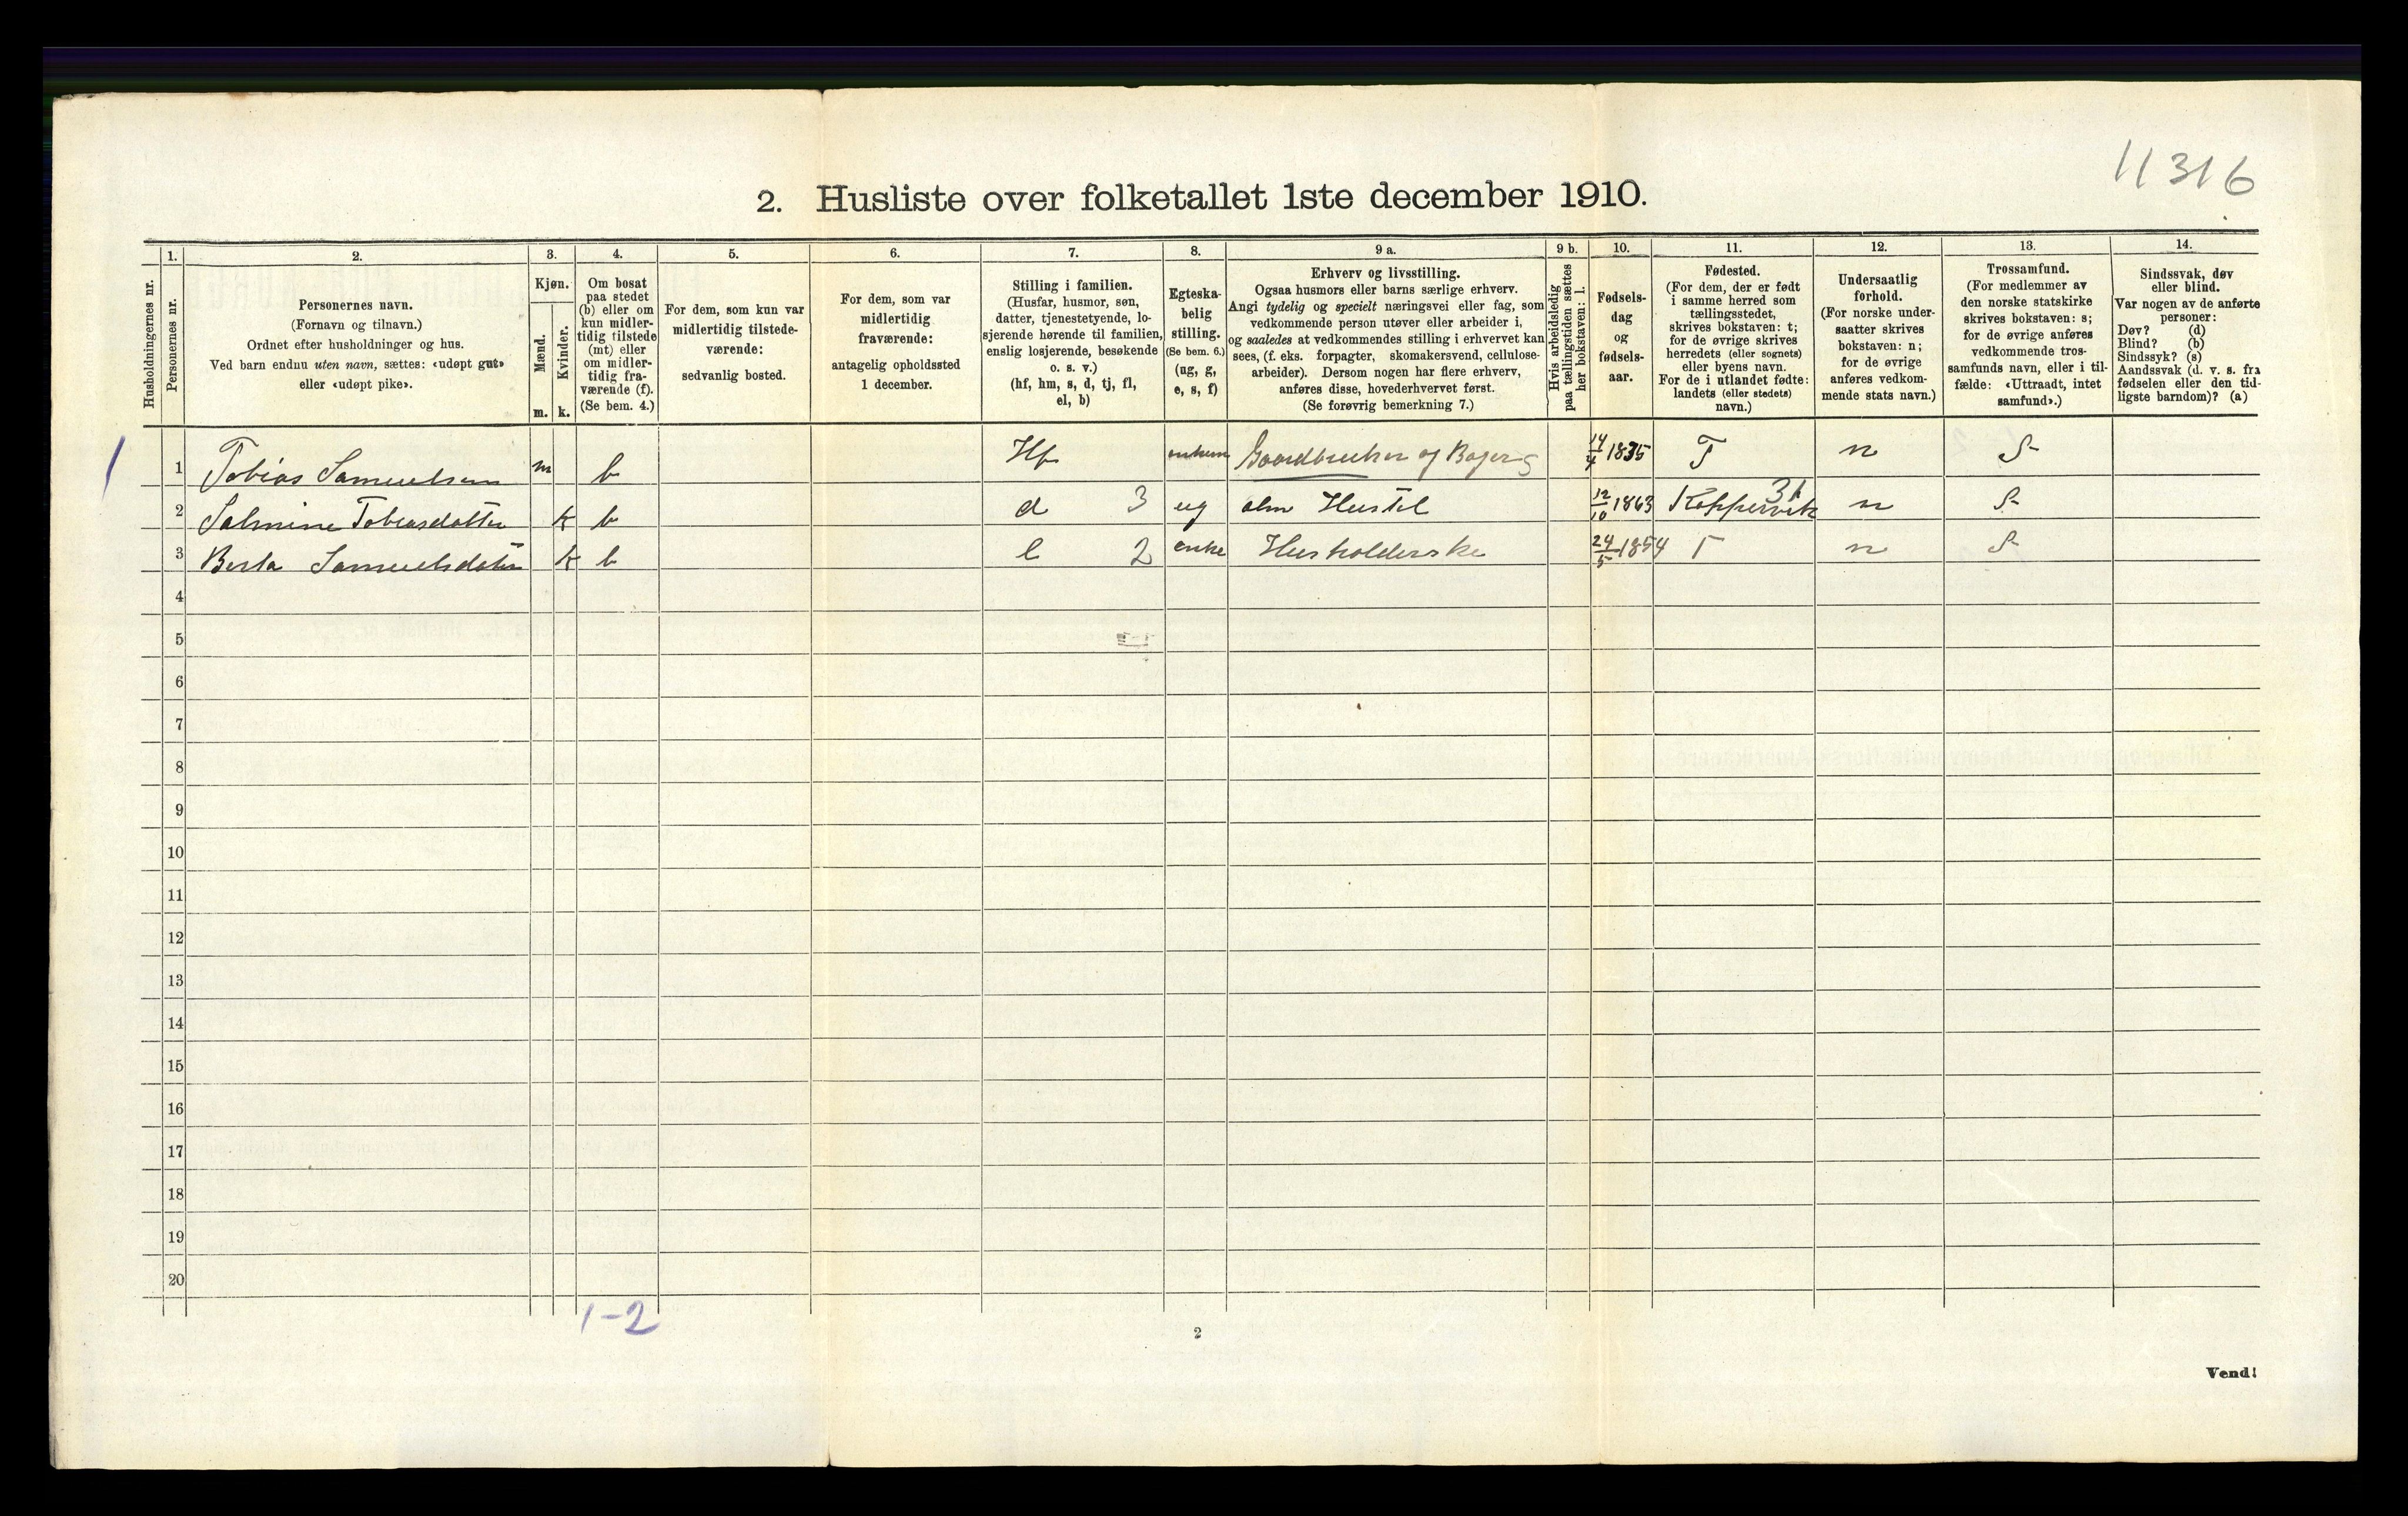 11316
2. Husliste over folketallet 1ste december 1910.
Husholdningernes nr.
1.
Personernes nr.
2.
Personernes navn.
(Fornavn og tilnavn.)
Ordnet efter husholdninger og hus.
Ved barn endnu uten navn, sættes: «udøpt gut»
eller «udøpt pike».
3.
Kjøn.
Mænd.
Kvinder.
m. k.
4.
Om bosat
paa stedet
(b) eller om
kun midler-
tidig tilstede
(mt) eller
om midler-
tidig fra-
værende (f).
(Se bem. 4.)
5.
For dem, som kun var
midlertidig tilstede-
værende:
sedvanlig bosted.
6.
For dem, som var
midlertidig
fraværende:
antagelig opholdssted
1 december.
7.
Stilling i familien.
(Husfar, husmor, søn,
datter, tjenestetyende, lo-
sjerende hørende til familien,
enslig losjerende, besøkende
o. s. v.)
(hf, hm, s, d, tj, fl,
el, b)
8.
Egteska-
belig
stilling.
(Se bem. 6.)
(ug, g,
e, s, f)
9 a.
Erhverv og livsstilling.
Ogsaa husmors eller barns særlige erhverv.
Angi tydelig og specielt næringsvei eller fag, som
vedkommende person utøver eller arbeider i,
og saaledes at vedkommendes stilling i erhvervet kan
sees, (f. eks. forpagter, skomakersvend, cellulose-
arbeider). Dersom nogen har flere erhverv,
anføres disse, hovederhvervet først.
(Se forøvrig bemerkning 7.)
9 b.
Hvis arbeidsledig
paa tællingstiden sættes
her bokstaven: l.
10.
Fødsels-
dag
og
fødsels-
aar.
11.
Fødested.
(For dem, der er født
i samme herred som
tællingsstedet,
skrives bokstaven: t;
for de øvrige skrives
herredets (eller sognets)
eller byens navn.
For de i utlandet fødte:
landets (eller stedets)
navn.)
12.
Undersaatlig
forhold.
(For norske under-
saatter skrives
bokstaven: n;
for de øvrige
anføres vedkom-
mende stats navn.)
13.
Trossamfund.
(For medlemmer av
den norske statskirke
skrives bokstaven: s;
for de øvrige anføres
vedkommende tros-
samfunds navn, eller i til-
fælde: «Uttraadt, intet
samfund».)
14.
Sindssvak, døv
eller blind.
Var nogen av de anførte
personer:
Døv? (d)
Blind? (b)
Sindssyk? (s)
Aandssvak (d. v. s. fra
fødselen eller den tid-
ligste barndom)? (a)
1 1 Tobias Samuelsen m b Hf enkem Gaardbruker og Bager 14/4 1835 T n S
2 Salmine Tobiasdatter k b d 3 ug alm Hustel 12/10 1863 Koppervik 31 n S
3 Berta Samuelsdatter k b l 2 enke Husholderske 24/5 1854 T n S
4
5
6
7
8
9
10
11
12
13
14
15
16
17
18
19
20
1-2
2
Vend!